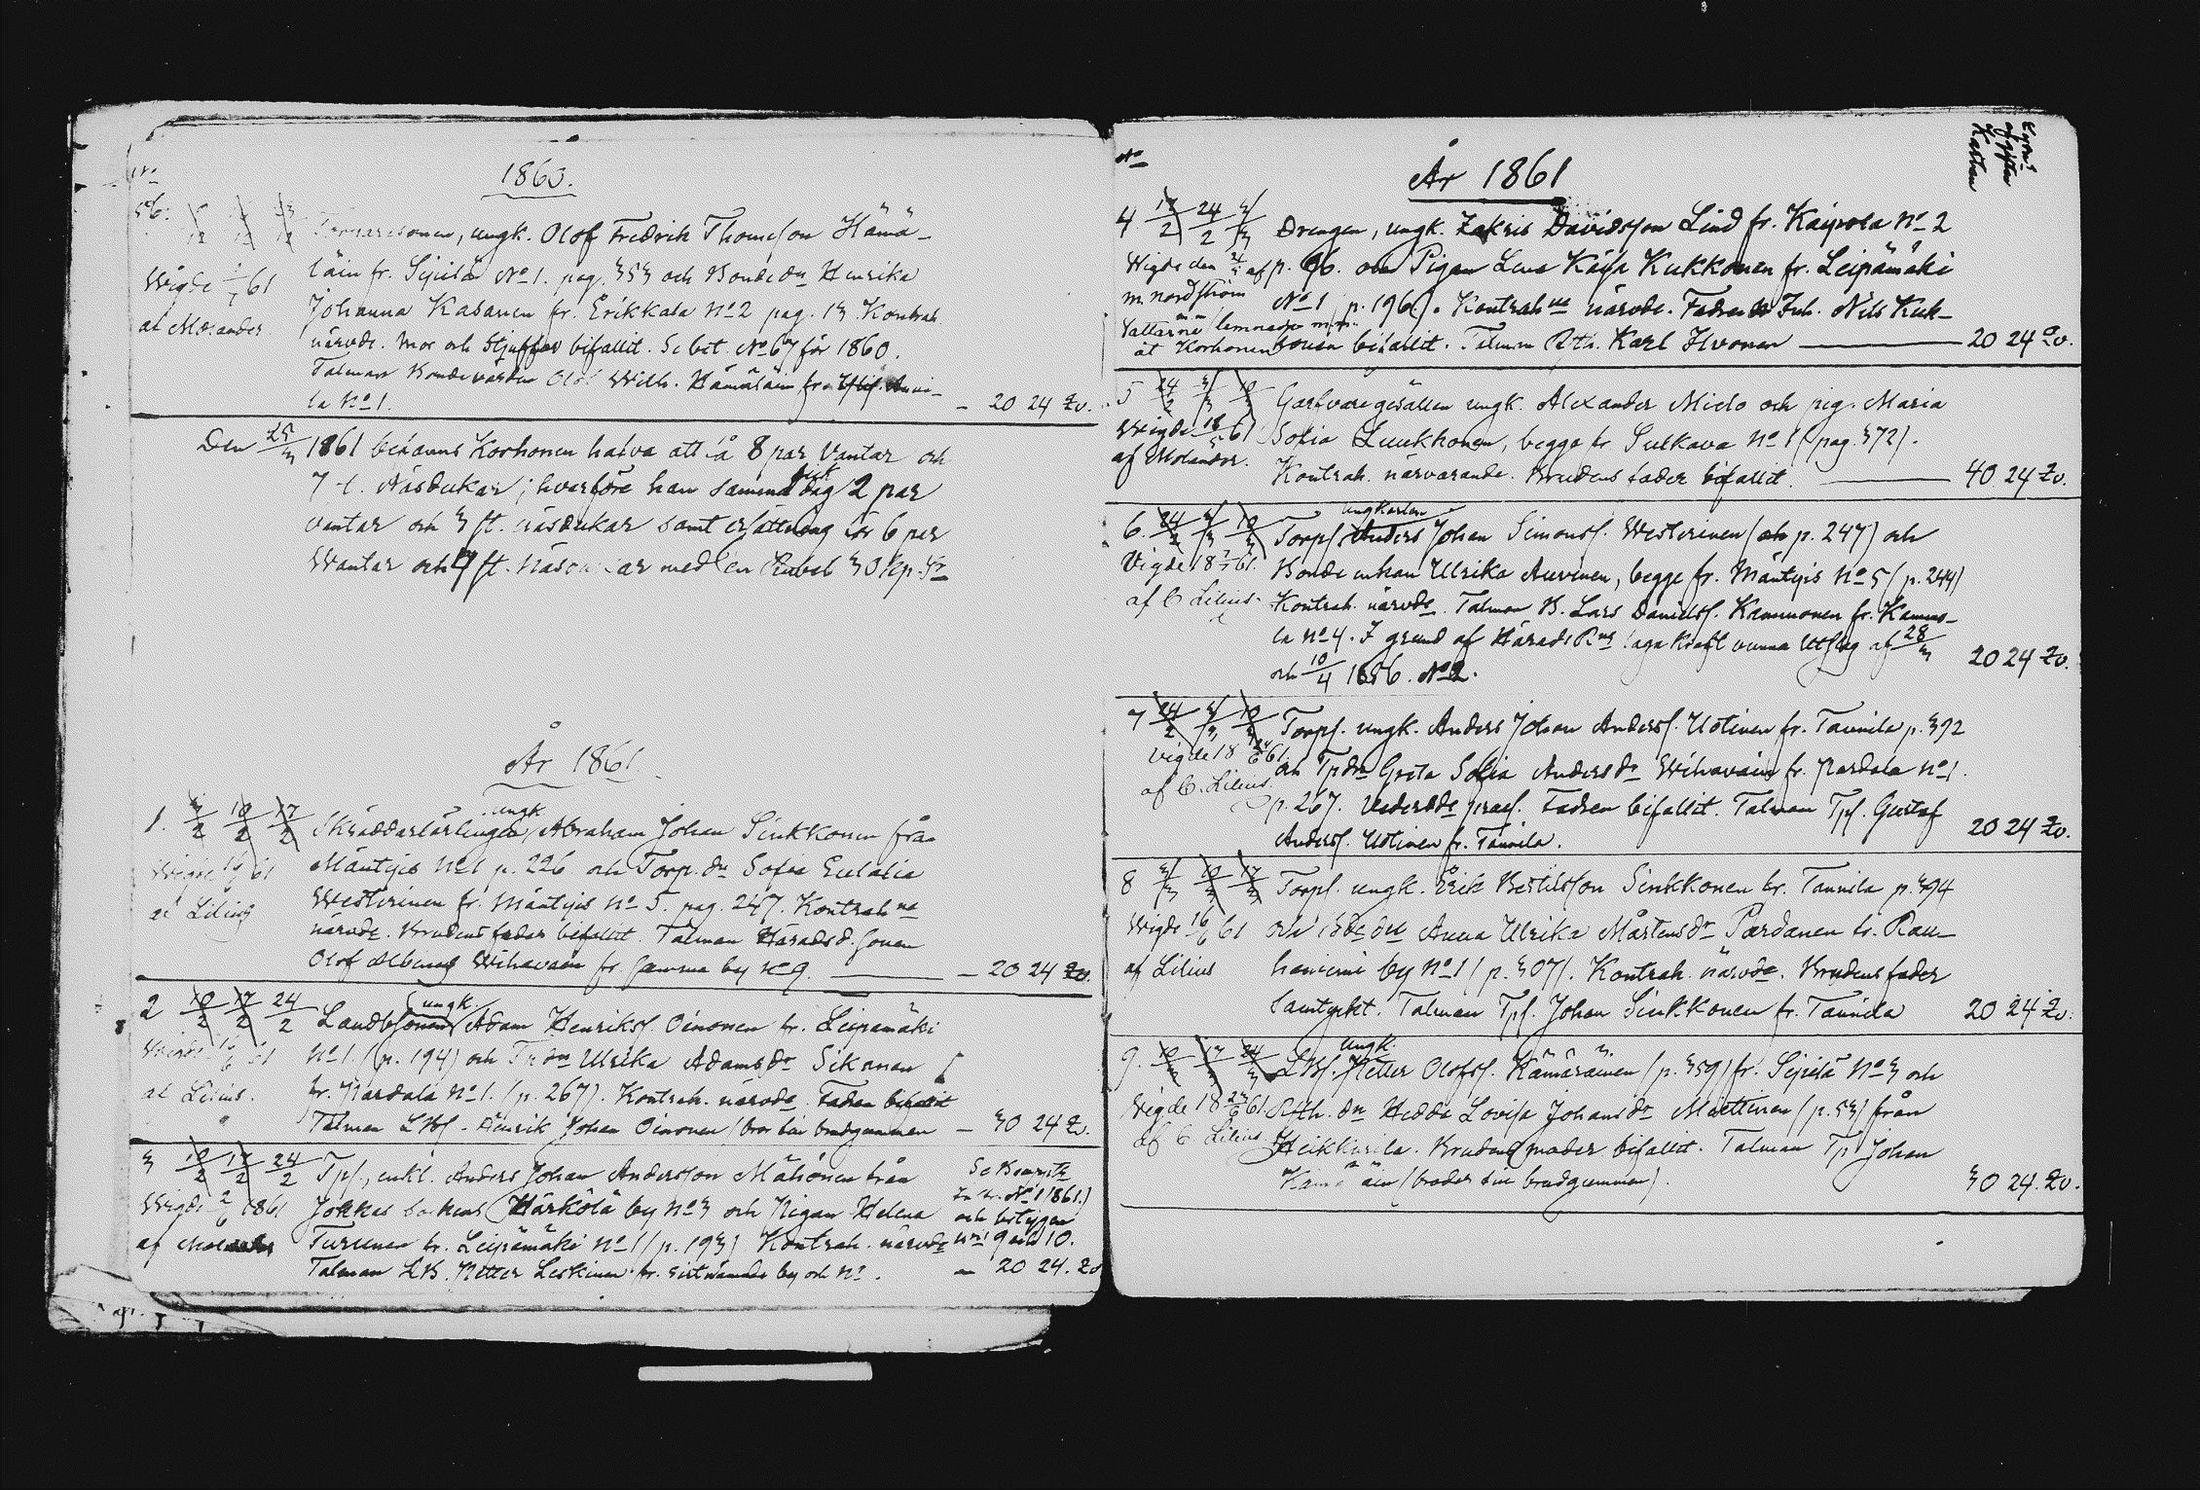 1860.
No
56.
Torparesonen, ungk. Olof Fredrik Thomesson Hämä-
läin fr. Sipilä No 1. pag. 353 och Bonde dn Henrika
Johanna Kasanen fr. Erikkala No 2 pag. 13 Kontrah
närvde. Mor och Stjuffar bifallit. Se bet. No 67 för 1860.
Talman Bondevärden Olof Wilh. Hämäläin fr. Anni-
la No 1. — 20 24 Zv.
Wigde 61
af Molander
Den 25/3 1861 behanns Korhonen hafva att få 8 par Vantar och
7 st. Näsdukar; hvarföre han samma dag fick 2 par
vantar och 3 st. näsdukar samt ersättning för 6 par
Wantar och 4 st. näsdukar med en Rubel 30 kp. Sr
År 1861.
1. 3/2 10/2 17/2 Skräddarlärlingen, ungk. Abraham Johan Sinkkonen från
Mäntyis No 1 p. 226 och Torp. dn Sofia Eulalia
Westerinen fr. Mäntyis No 5. pag. 247. Kontrah ne
närvde. Brudens fader bifallit. Talman Härads d.
Olof Albins Wihavain fr. Gamma by No 9. — 20 24 Zv.
Wigde 61
af Lilius
2 10/2 17/2 24/2 Landbsonen, ungk. Adam Henriksf. Oinonen fr. Leipämäki
No 1. (p. 194) och Tp dn Ulrika Adams dr Sikanen
fr. Pardala No 1. (p. 267). Kontrah. närvde. Fadren bifallit
Talman LBf. Henrik Johan Oinonen (bror till brudgummen — 30 24 Zv.
Wigde 61
af Lilius.
3 10/2 17/2 24/2 Tpf., enkl. Anders Johan Andersson Mähönen från
Jokkas sockens Härkölä by No 3 och Pigan Helena
Turunen fr. Leipämäki No 1 (p. 193) Kontrah. närvde
Talman LB. Petter Leskinen fr. by och No.
Wigde 2/6 1861
af Molander
No 1 1861.)
och betygen
No 9 och 10.
— 20 24. Zv
No
År 1861
Kyrk
afgiften
Kassan
4 17/2 24/2 3/3 Drengen, ungk. Zakris Davidsson Lind fr. Kaipola No 2
p. 96. och Pigan Lena Kaija Kukkonen fr. Leipämäki
No 1 p. 196). Kontrah ne närvde. Fadren Inh. Nils Kuk-
konen bifallit. Talman Rth. Karl Ihvonen — 20 24 Zv.
Wigde den af
M. Nordström
Vattarne lemnade
åt Korhonen
5 24/2 3/3 10/3 Garfvaregesällen ungk. Alexander Mielo och pig. Maria
Sofia Luukkonen, begge fr. Sulkava No 1 (pag. 372).
Kontrah. närvarande. Brudens fader bifallit. — 40 24 Zv.
Wigde 18/5 61
af Molander.
6. 24/2 3/3 10/3 Torpf. ungkarlen Anders Johan Simonsf. Westerinen (p. 247) och
Bonde enkan Ulrika Auvinen, begge fr. Mäntyis No 5 (p. 244)
Kontrah. närvde. Talman B. Lars Davidsf. Kammonen fr. Kammo-
la No 4. I grund af Härads Rns laga kraft vunna Utslag af 28/3
och 10/4 1856. No 2. 20 24 Zv.
Vigde 18 61.
af C Lilius
7 24/2 3/3 10/3 Torpf. ungk. Anders Johan Andersf. Uotinen fr. Taunila p. 392
och Tp dn Greta Sofia Anders dr Wihavain fr. Pardala No 1.
p. 267. Vederbde præs. Fadren bifallit. Talman Tpf. Gustaf
Andersf. Uotinen fr. Taunila. 20 24 Zv.
Vigde 18 61.
af C. Lilius.
8 3/3 10/3 17/3 Torpf. ungk. Erik Bertilsson Sinkkonen fr. Taunila p. 394
och Bde dn Anna Ulrika Mårtens dr Pardanen fr. Rau-
haniemi by No 1 (p. 307). Kontrah. närvde. Brudens fader
samtyckt. Talman Tpf. Johan Sinkkonen fr. Taunila 20 24 Zv.
Wigde 16/6 61
af Lilius
9. 10/3 17/3 24/3 LBf. ungk. Petter Olofsf. Kämäräinen (p. 359) fr. Sipilä No 3 och
Rth. dn Hedda Lovisa Johans dr Miettinen (p. 53) från
Heikkurila. Brudens moder bifallit. Talman Tpf. Johan
Kämäräin (broder till brudgummen). 30 24. Zv.
Vigde 18 23/6 61
af C Lilius